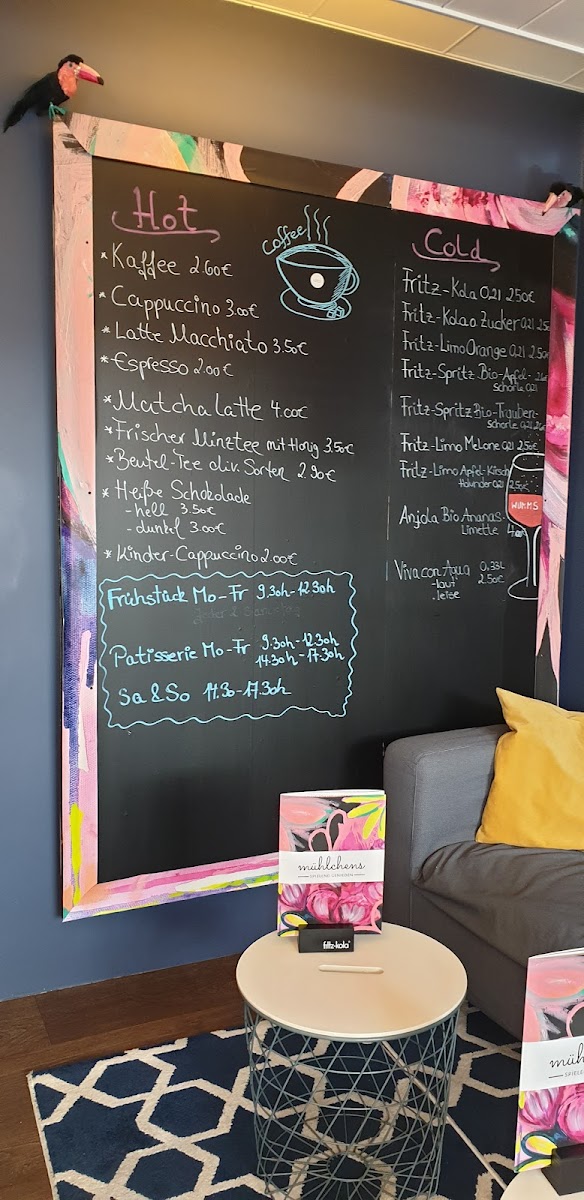 Hot
Coffee
* Kaffee 2.60€
* Cappuccino 3.00€
* Latte Macchiato 3.50€
* Espresso 2.00€
* Matcha Latte 4.00€
* Frischer Minztee mit Honig 3.50€
* Beutel-Tee div. Sorten 2.90€
* Heiße Schokolade
- hell 3.50€
- dunkel 3.00€
* Kinder-Cappuccino 2.00€
Frühstück Mo-Fr 9.30h-12.30h
Patisserie Mo-Fr 9.30h-12.30h
14.30h-17.30h
Sa & So 14.30-17.30h
Cold
Fritz-Kola 0,2l 2.50€
Fritz-Kola o. Zucker 0,2l 2.5
Fritz-Limo Orange 0,2l 2.50
Fritz-Spritz Bio-Apfel-
schorle 0,2l
Fritz-Spritz Bio-Trauben-
schorle 0,2l
Fritz-Limo Melone 0,2l 2.50€
Fritz-Limo Apfel-Kirsch
Holunder 0,2l 2.50€
WUMMS
Anjola Bio Ananas-
Limette
Viva con Agua 0.33l
- laut 2.50€
- leise
mühlchens
fritz-kola
mühl
SPIELE